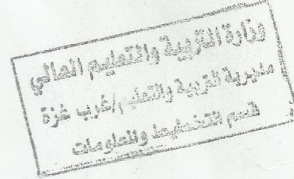 وزارة التربية والتعليم العالي
مديرية التربية والتعليم/غرب غزة
قسم التخطيط والمعلومات